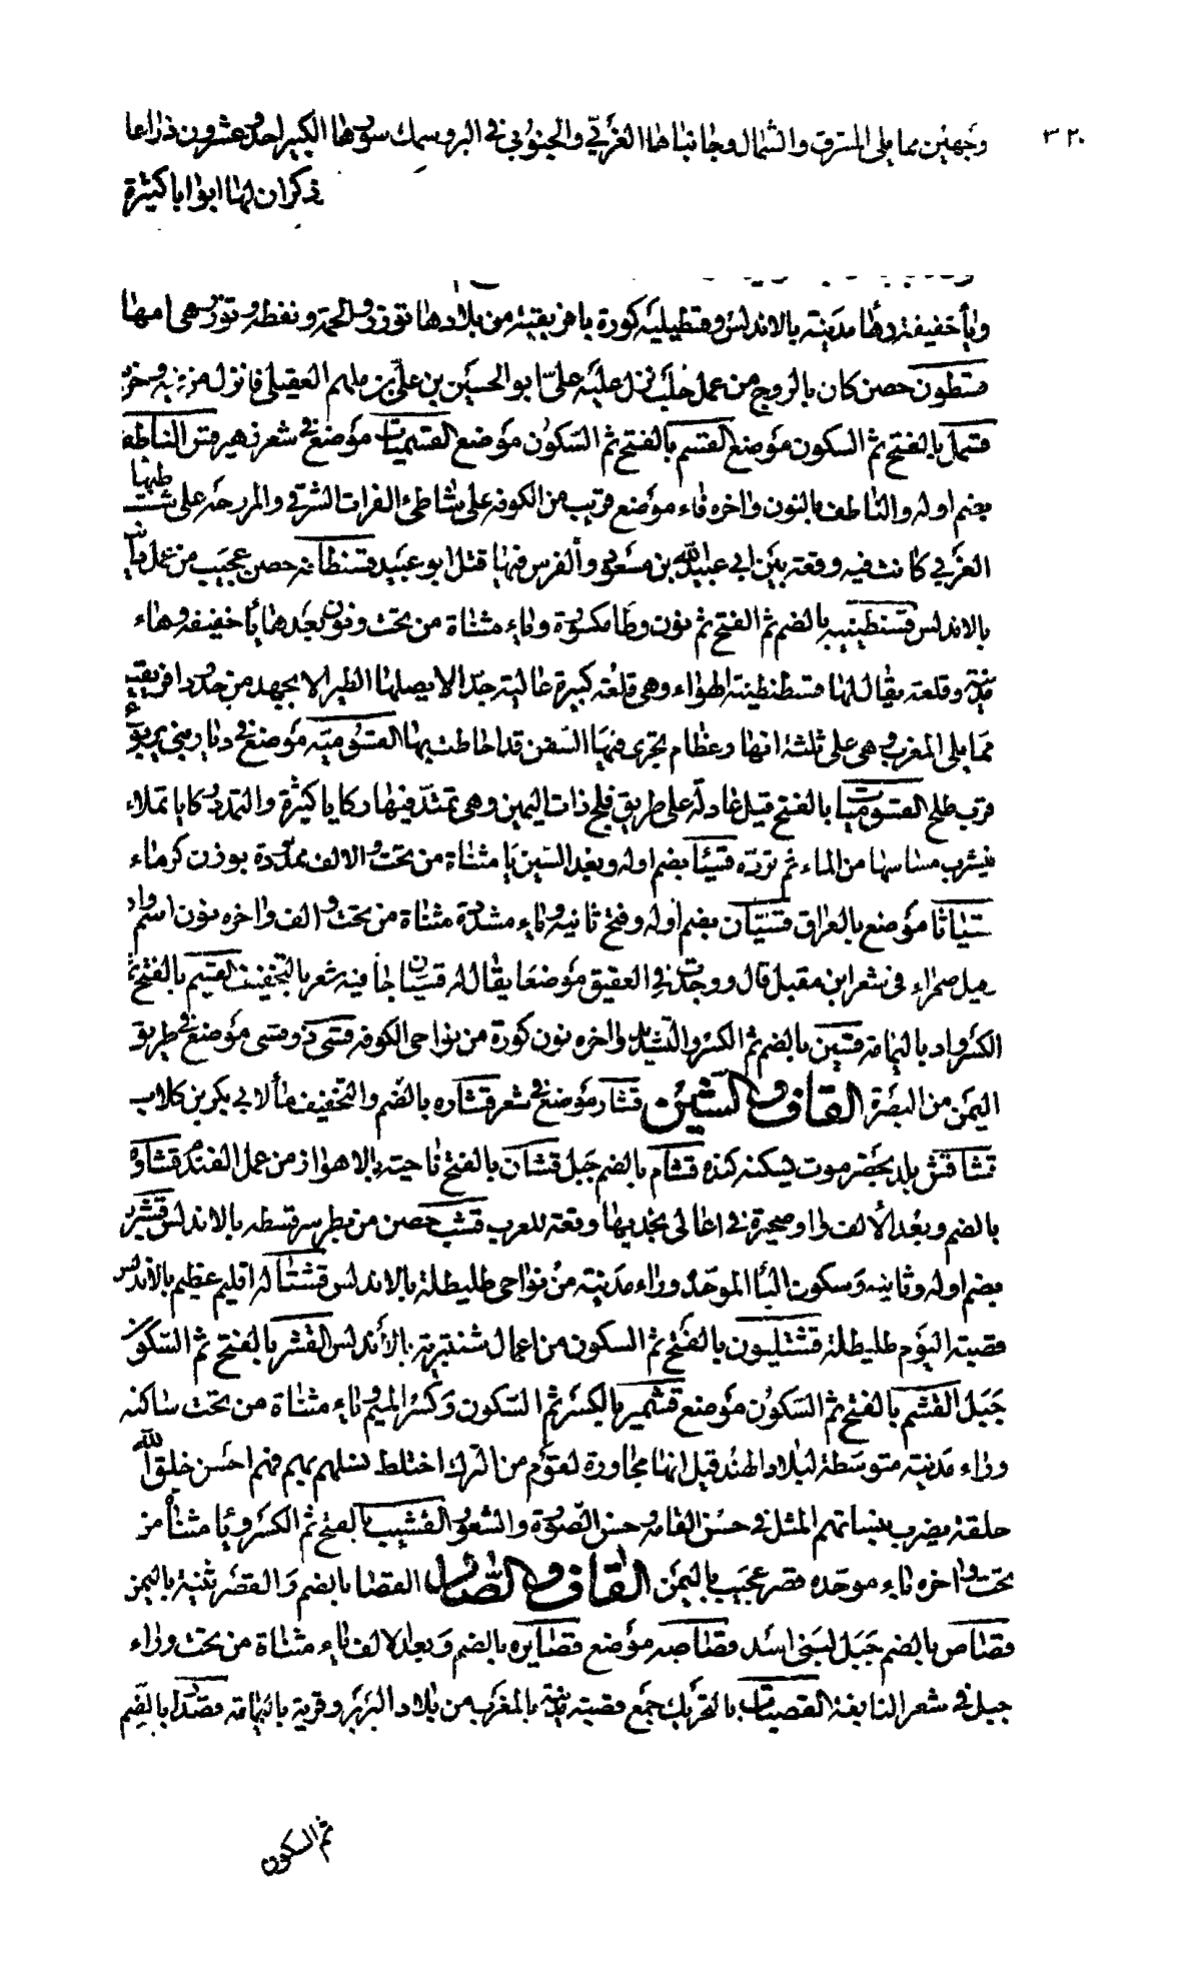 ٣٢٠
وجهين مما يلى المشرق والشمال وجانباها الغربي والجنوبي في البر وسمك سورها الكبير احد وعشرون ذراعا
ذكر ان لها ابوابا كثيرة
ويأ خفيفة وهأ مدينة بالاندلس وقسطيلية كورة بافريقية من بلادها توزر والحمة ونفطة وتوزر هى امها
قسطون حصن كان بالروج من عمل حلب نزل عليه ابو الحسين بن على بن ملهم العقيلى فانزل من فيه وخربه
قسمل بالفتح ثم السكون موضع القسم بالفتح ثم السكون موضع القسميات موضع في شعر زهير قس الناطف
بضم اوله والناطف بالنون واخره فاء موضع قريب من الكوفة على شاطئ الفرات الشرقي والمروحة على شطها
الغربي كانت فيه وقعة بين ابي عبيد الله بن مسعود والفرس فيها قتل ابو عبيد قسنطانة حصن عجيب من عمل دانية
بالاندلس قسنطينية بالضم ثم الفتح ثم نون وطا مكسورة وياء مثناة من تحت ونون بعدها يأ خفيفة وهاء
مدينة وقلعة يقال لها قسطنطينة الهواء وهى قلعة كبيرة عالية جدا لا يصلها الطير الا بجهد من حدود افريقية
مما يلى المغرب وهى على ثلثة انهار عظام تجرى فيها السفن قد احاطت بها القسومية موضع في ديار بنى يربوع
قرب طلح القسوميات بالفتح قيل عادلة على طريق فلج ذات اليمين وهى ثمد فيها ركايا كثيرة والثمد ركايا تملاء
فيشرب مشاشها من الماء ثم تردّه قسيأ بضم اوله وبعد السين يا مثناة من تحت والالف ممدودة بوزن كرماء
قسياثا موضع بالعراق قسيّان بضم اوله وفتح ثانيه وياء مشددة مثناة من تحت والف واخره نون اسم واد
وقيل صحراء فى شعر ابن مقبل قال ووجدت في العقيق موضعا يقال له قسيان جأ فيه شعر بالتخفيف القسيم بالفتح ثم
الكسر واد باليمامة قسين بالضم ثم الكسر والتشديد واخره نون كورة من نواحى الكوفة قسى ذو قسى موضع في طريق
اليمن من البصرة القاف والشين قشار موضع في شعر قشاره بالضم والتخفيف مأ لابي بكر بن كلاب
قشاقش بلد بحضرموت يسكنه كنده قشام بالضم جبل قشان بالفتح ناحية بالاهواز من عمل الفندم قشاوه
بالضم وبعد الألف واو صحيرة في اعالى نجد بها وقعة للعرب قشب حصن من نظر سرقسطه بالاندلس قشبر
بضم اوله وثانيه وسكون البأ الموحدة وراء مدينة من نواحى طليطلة بالاندلس قشتالة اقليم عظيم بالأندلس
قصبته اليوم طليطلة قشتليون بالفتح ثم السكون من اعمال شنتبرية بالأندلس القشر بالفتح ثم السكون
جبل القشم بالفتح ثم السكون موضع قشمير بالكسر ثم السكون وكسر الميم وياء مثناة من تحت ساكنه
وراء مدينة متوسطة لبلاد الهند قيل انها مجاورة لقوم من الترك اختلط نسلهم بهم فهم احسن خلق الله
خلقة يضرب بنسائهم المثل في حسن القامة وحسن الصورة والشعور القشيب بالفتح ثم الكسر ويأ مثناة من
تحت واخره باء موحده قصر عجيب باليمن القاف والصاد القصا بالضم والقصر ثنية باليمن
قصاص بالضم جبل لبنى اسد قصاصه موضع قصايره بالضم وبعد الالف ياء مثناة من تحت وراء
جبل في شعر النابغة القصبات بالتحريك جمع قصبة مدينة بالمغرب من بلاد البربر وقرية باليمامة قصدا بالضم
ثم السكون